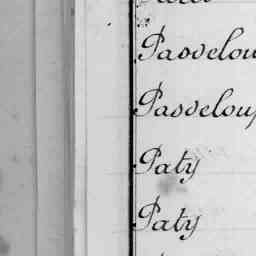 Pasdelou
Pasdeloup
Paty
Paty